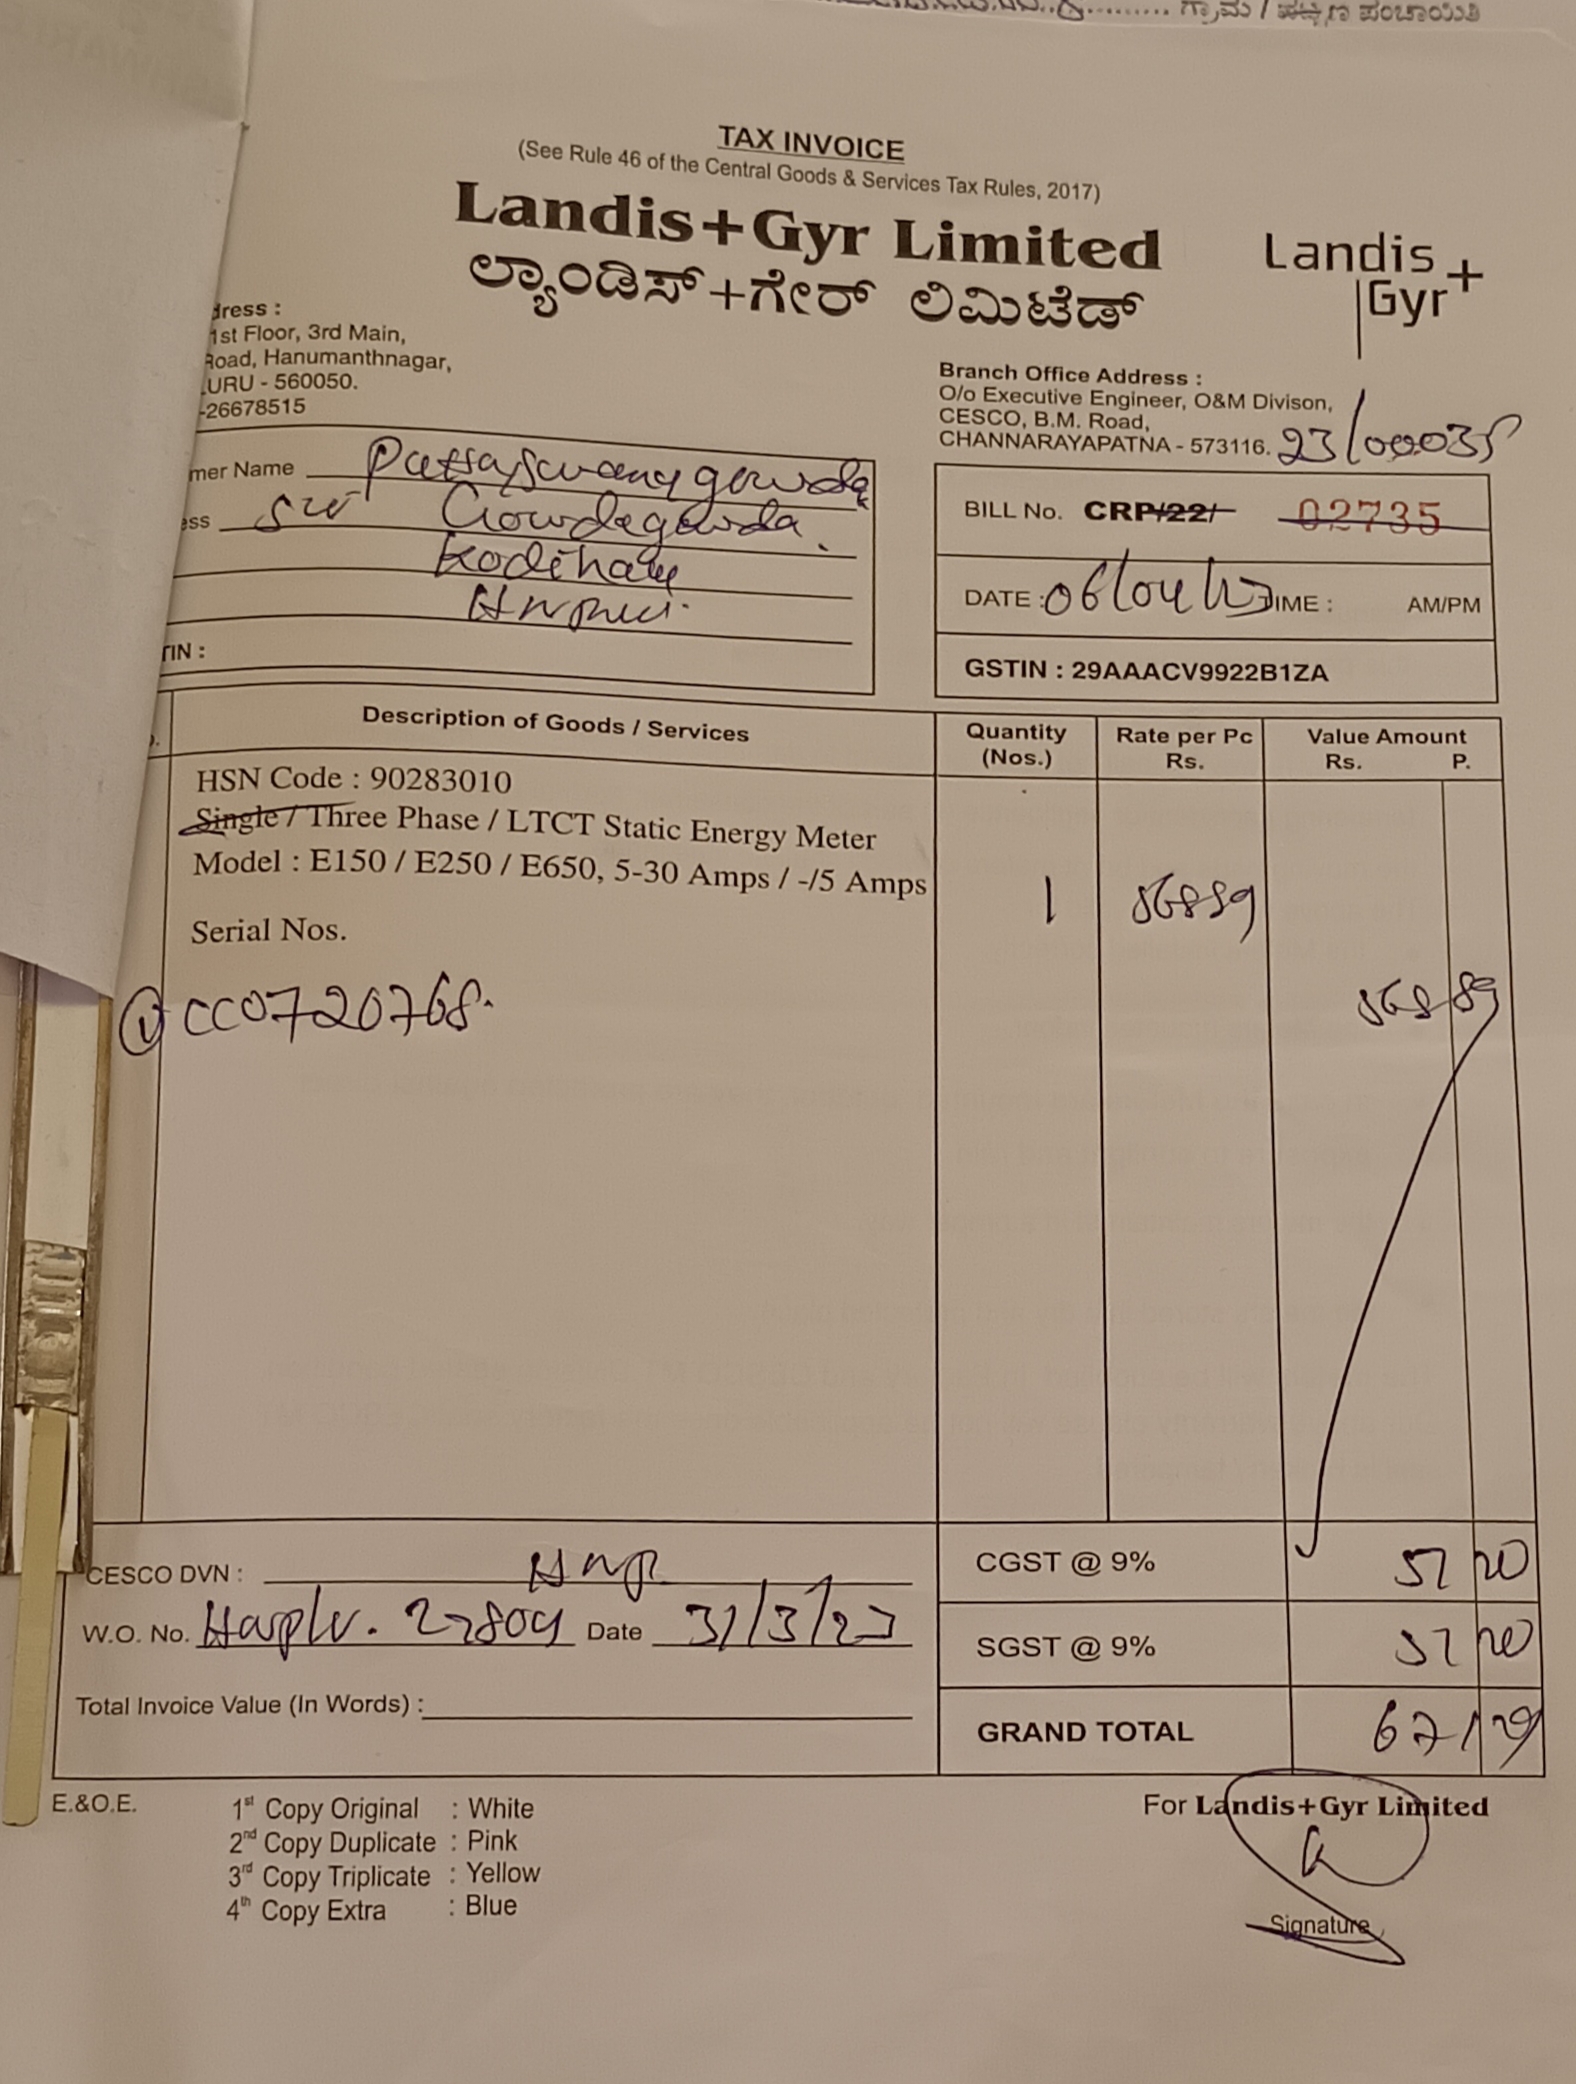 ಗ್ರಾಮ / ಪಟ್ಟಣ ಪಂಚಾಯಿತಿ
TAX INVOICE
(See Rule 46 of the Central Goods & Services Tax Rules, 2017)
Landis+Gyr Limited
ಲ್ಯಾಂಡಿಸ್+ಗೇರ್ ಲಿಮಿಟೆಡ್
Landis
Gyr+
dress :
1st Floor, 3rd Main,
Road, Hanumanthnagar,
LURU - 560050.
-26678515
Branch Office Address :
O/o Executive Engineer, O&M Divison,
CESCO, B.M. Road,
CHANNARAYAPATNA - 573116.
mer Name
ess Gowdegowda
TIN :
BILL No. CRP/22/- 02735
DATE : TIME : AM/PM
GSTIN : 29AAACV9922B1ZA
Description of Goods / Services Quantity (Nos.) Rate per Pc Rs. Value Amount Rs. P.
HSN Code : 90283010
Single / Three Phase / LTCT Static Energy Meter
Model : E150 / E250 / E650, 5-30 Amps / -/5 Amps
1
Serial Nos.
① CC0720768.
CESCO DVN : Hnp
CGST @ 9%
W.O. No. Date 31/3/23
SGST @ 9%
Total Invoice Value (In Words) :
GRAND TOTAL 671 29
E.&O.E.
1st Copy Original : White
2nd Copy Duplicate : Pink
3rd Copy Triplicate : Yellow
4th Copy Extra : Blue
For Landis+Gyr Limited
Signature